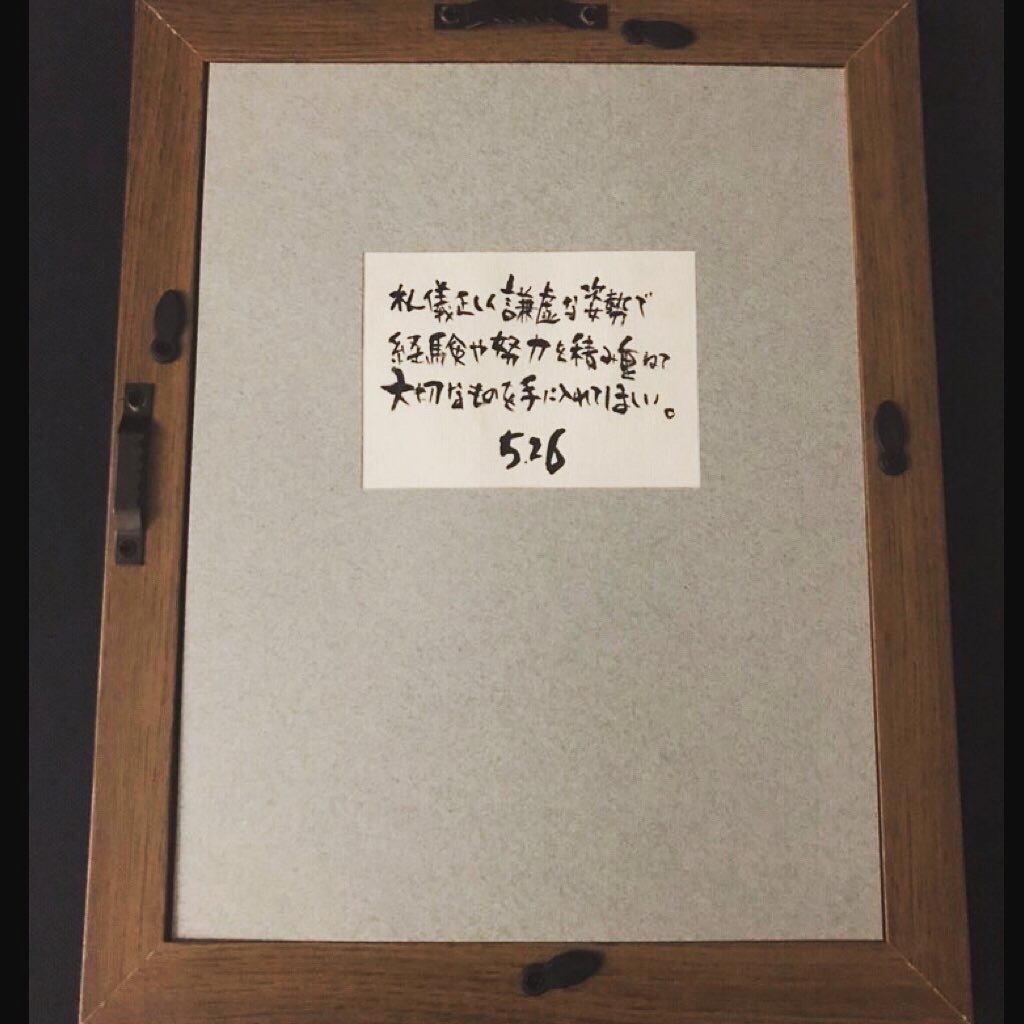 礼儀正しく謙虚な姿勢で
経験や努力を積み重ねて
大切なものを手に入れてほしい。
5.26